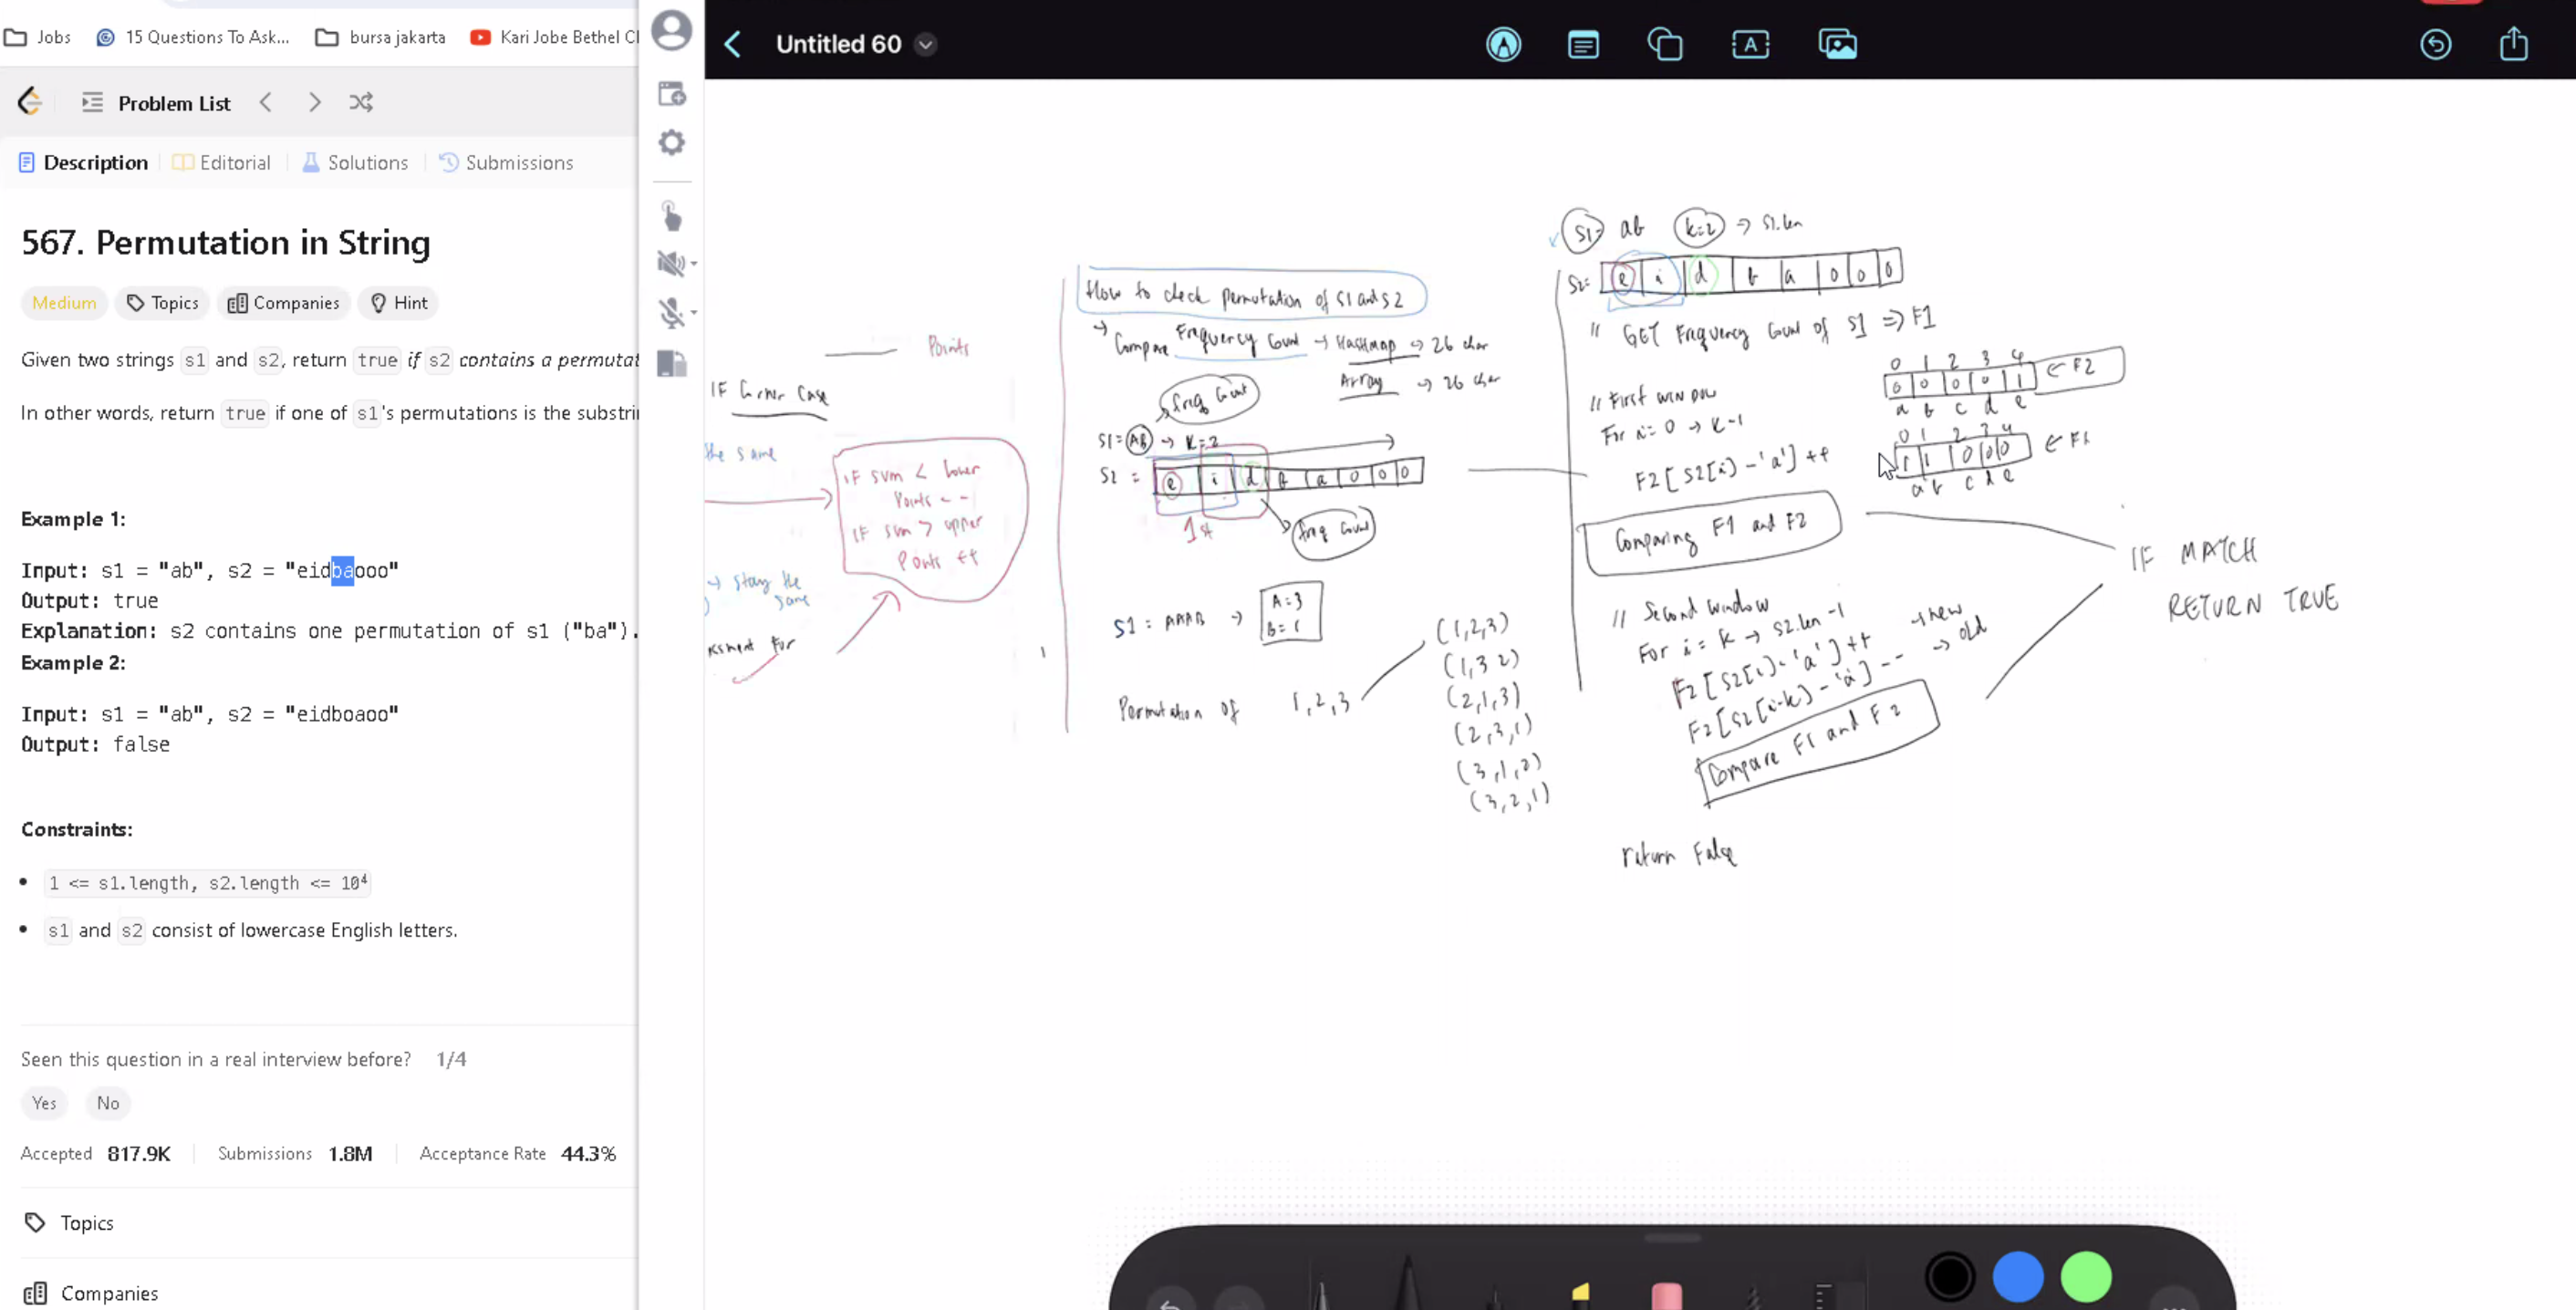 Jobs
15 Questions To Ask...
bursa jakarta
Kari Jobe Bethel
Untitled 60
Problem List
Description
Editorial
Solutions
Submissions
567. Permutation in String
Medium
Topics
Companies
Hint
Given two strings s1 and s2, return true if s2 contains a permutat
In other words, return true if one of s1's permutations is the substri
Example 1:
Input: s1 = "ab", s2 = "eidbaooo"
Output: true
Explanation: s2 contains one permutation of s1 ("ba").
Example 2:
Input: s1 = "ab", s2 = "eidboaoo"
Output: false
Constraints:
1 <= s1.length, s2.length <= 10⁴
s1 and s2 consist of lowercase English letters.
Seen this question in a real interview before? 1/4
Yes
No
Accepted 817.9K
Submissions 1.8M
Acceptance Rate 44.3%
Topics
Companies
Points
IF Corner Case
the same
IF sum < lower
Points --
IF sum > upper
Points ++
→ stay the
same
For
How to check permutation of S1 and S2
→ Compare Frequency Count → HashMap → 26 char
Array → 26 char
freq Count
S1 = AB → K=2
S2 = e i d b a o o o
1st
freq Count
S1 = AAAB → A=3
B=1
Permutation of 1,2,3
(1,2,3)
(1,3 2)
(2,1,3)
(2,3,1)
(3,1,2)
(3,2,1)
S1= ab k=2 → S1.len
S2= e i d b a o o o
// GET Frequency Count of S1 => F1
0 1 2 3 4
0 0 0 0 1 ← F2
a b c d e
// First window
For i=0 → K-1
0 1 2 3 4
1 1 0 0 0 ← F1
a b c d e
F2[S2[i]-'a']++
Comparing F1 and F2
IF MATCH
RETURN TRUE
// Second window
For i = K → S2.len-1
F2[S2[i]-'a']++ → new
F2[S2[i-k]-'a']-- → old
Compare F1 and F2
return False